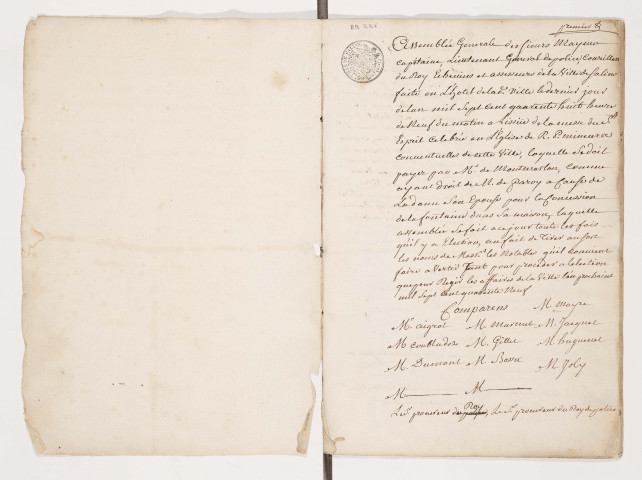 premier
Assemblée Generale des sieurs Mayeur
capitaine, Lieutenant General de police, Conseillers
du Roy Echevins et assesseurs de la Ville de Salins
faite en L'hotel de lad. Ville le dernier jour
de lan mil Sept Cent quarante huit heure
de Neuf du matin a Lissüe de la messe du St.
Esprit Celebrée en L'Eglise de R. P. mineurs
Conventuelles de cette Ville, laquelle se doit
payer par Mr. de Montmarlon, comme
ayant droit de M. de Parroy a Cause de
La dame Son Epouse pour la Concession
de la fontaine dans Sa maison, laquelle
assemblée se fait a ce jour toute les fois
qu'il y a Election, au fait de Tirer au sort
les noms de Mess. les Notables qu'il convient
faire avertir tant pour proceder a lelection
que pour Regir les affaires de la Ville lan prochain
mil Sept Cent quarante Neuf
Comparens M. mayre
Mr. aigrot M. marmet M. Jacquet
M. M. Gillet M. huguenet
M. Dumont M. M. Joly
M M
Le Sr. procureur du Roy, Le Sr. procureur du Roy de police